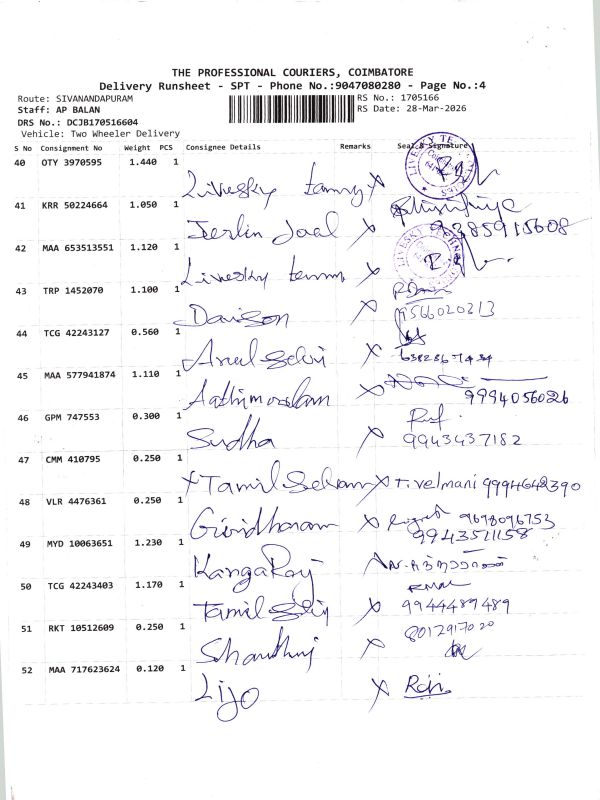 THE PROFESSIONAL COURIERS, COIMBATORE
Delivery Runsheet - SPT - Phone No.:9047080280 - Page No.:4
Route: SIVANANDAPURAM
RS No.: 1705166
Staff: AP BALAN
RS Date: 28-Mar-2026
DRS No.: DCJB170516604
Vehicle: Two Wheeler Delivery
S No Consignment No Weight PCS Consignee Details Remarks Seal & Signature
40 OTY 3970595 1.440 1
41 KRR 50224664 1.050 1
Jerlin Joal X 9385915608
42 MAA 653513551 1.120 1
43 TRP 1452070 1.100 1
Davison X 9566020213
44 TCG 42243127 0.560 1
Arul Selvi X
45 MAA 577941874 1.110 1
X 9994056026
46 GPM 747553 0.300 1
Sudha X 9943437182
47 CMM 410795 0.250 1
X Tamil Selvan X T. Velmani 9994642390
48 VLR 4476361 0.250 1
Giridharan X 9698096753
9943511158
49 MYD 10063651 1.230 1
KangaRaj
50 TCG 42243403 1.170 1
X 9944489489
51 RKT 10512609 0.250 1
X 8012917020
52 MAA 717623624 0.120 1
Lijo X